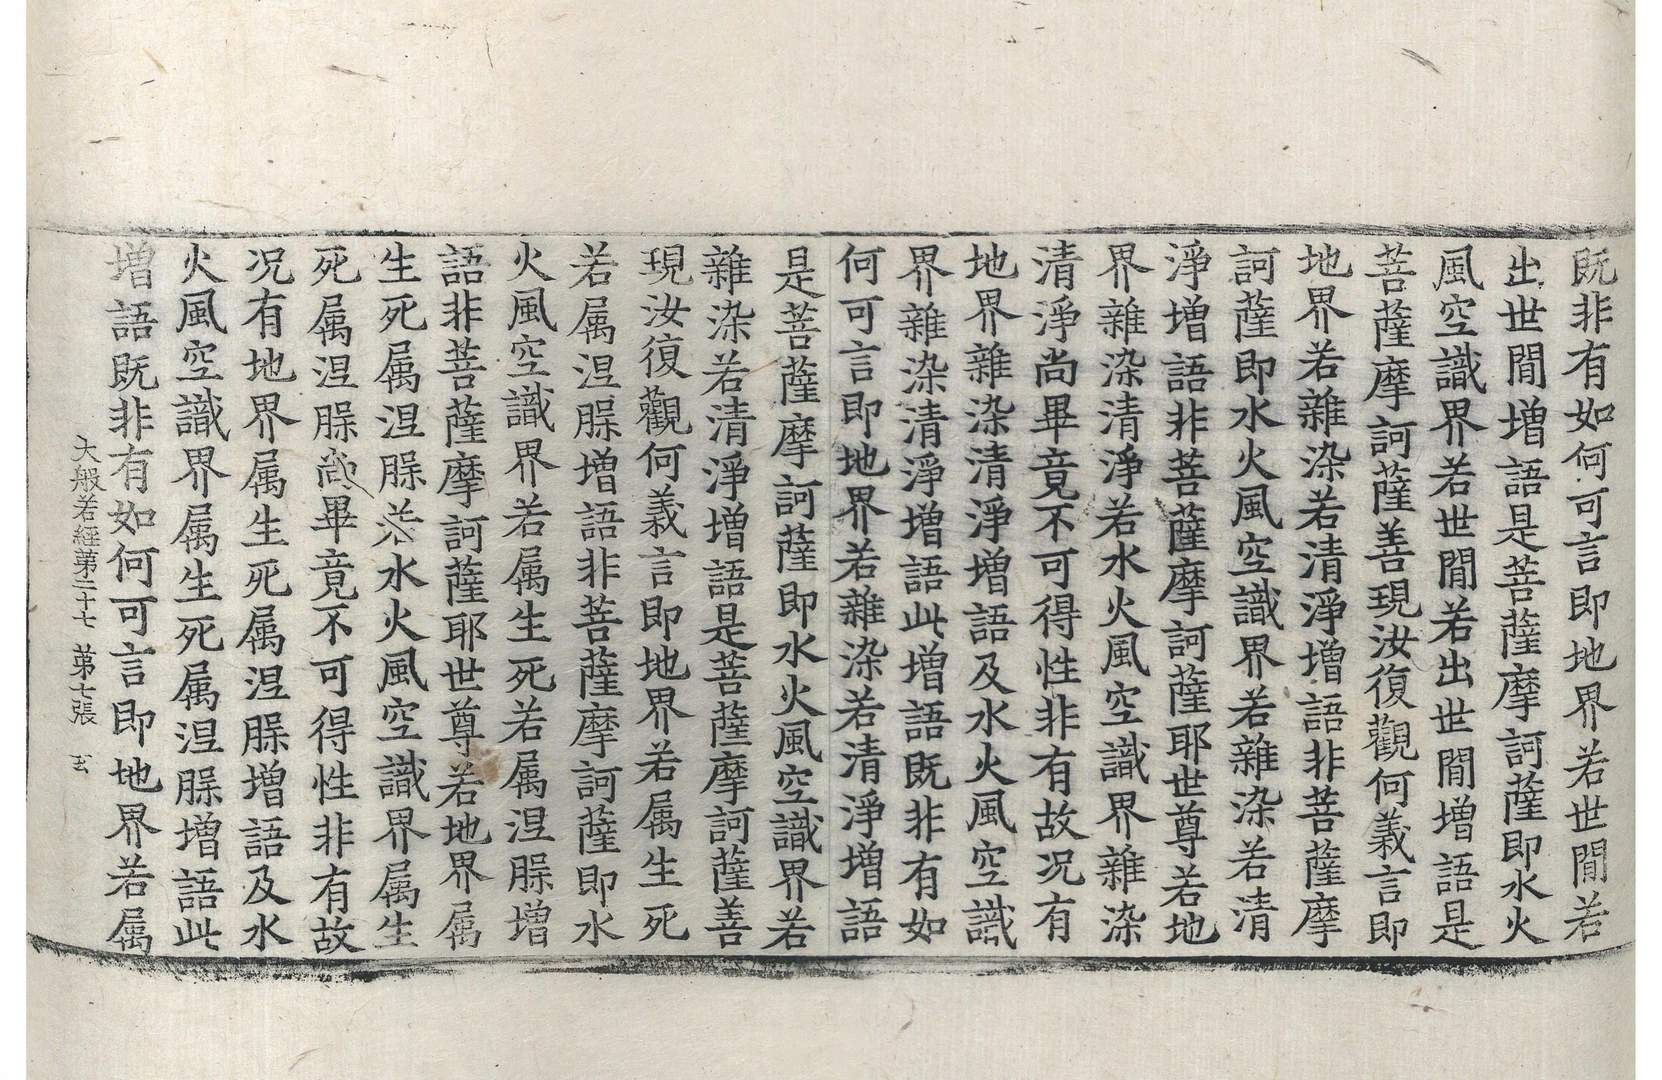 既非有如何可言即地界若世間若
出世間增語是菩薩摩訶薩即水火
風空識界若世間若出世間增語是
菩薩摩訶薩善現汝復觀何義言即
地界若雜染若清淨增語非菩薩摩
訶薩即水火風空識界若雜染若清
淨增語非菩薩摩訶薩耶世尊若地
界雜染清淨若水火風空識界雜染
清淨尚畢竟不可得性非有故况有
地界雜染清淨增語及水火風空識
界雜染清淨增語此增語既非有如
何可言即地界若雜染若清淨增語
是菩薩摩訶薩即水火風空識界若
雜染若清淨增語是菩薩摩訶薩善
現汝復觀何義言即地界若属生死
若属涅槃增語非菩薩摩訶薩即水
火風空識界若属生死若属涅槃增
語非菩薩摩訶薩耶世尊若地界属
生死属涅槃若水火風空識界属生
死属涅槃尚畢竟不可得性非有故
况有地界属生死属涅槃增語及水
火風空識界属生死属涅槃增語此
增語既非有如何可言即地界若属
大般若經第三十七 第七張 玄